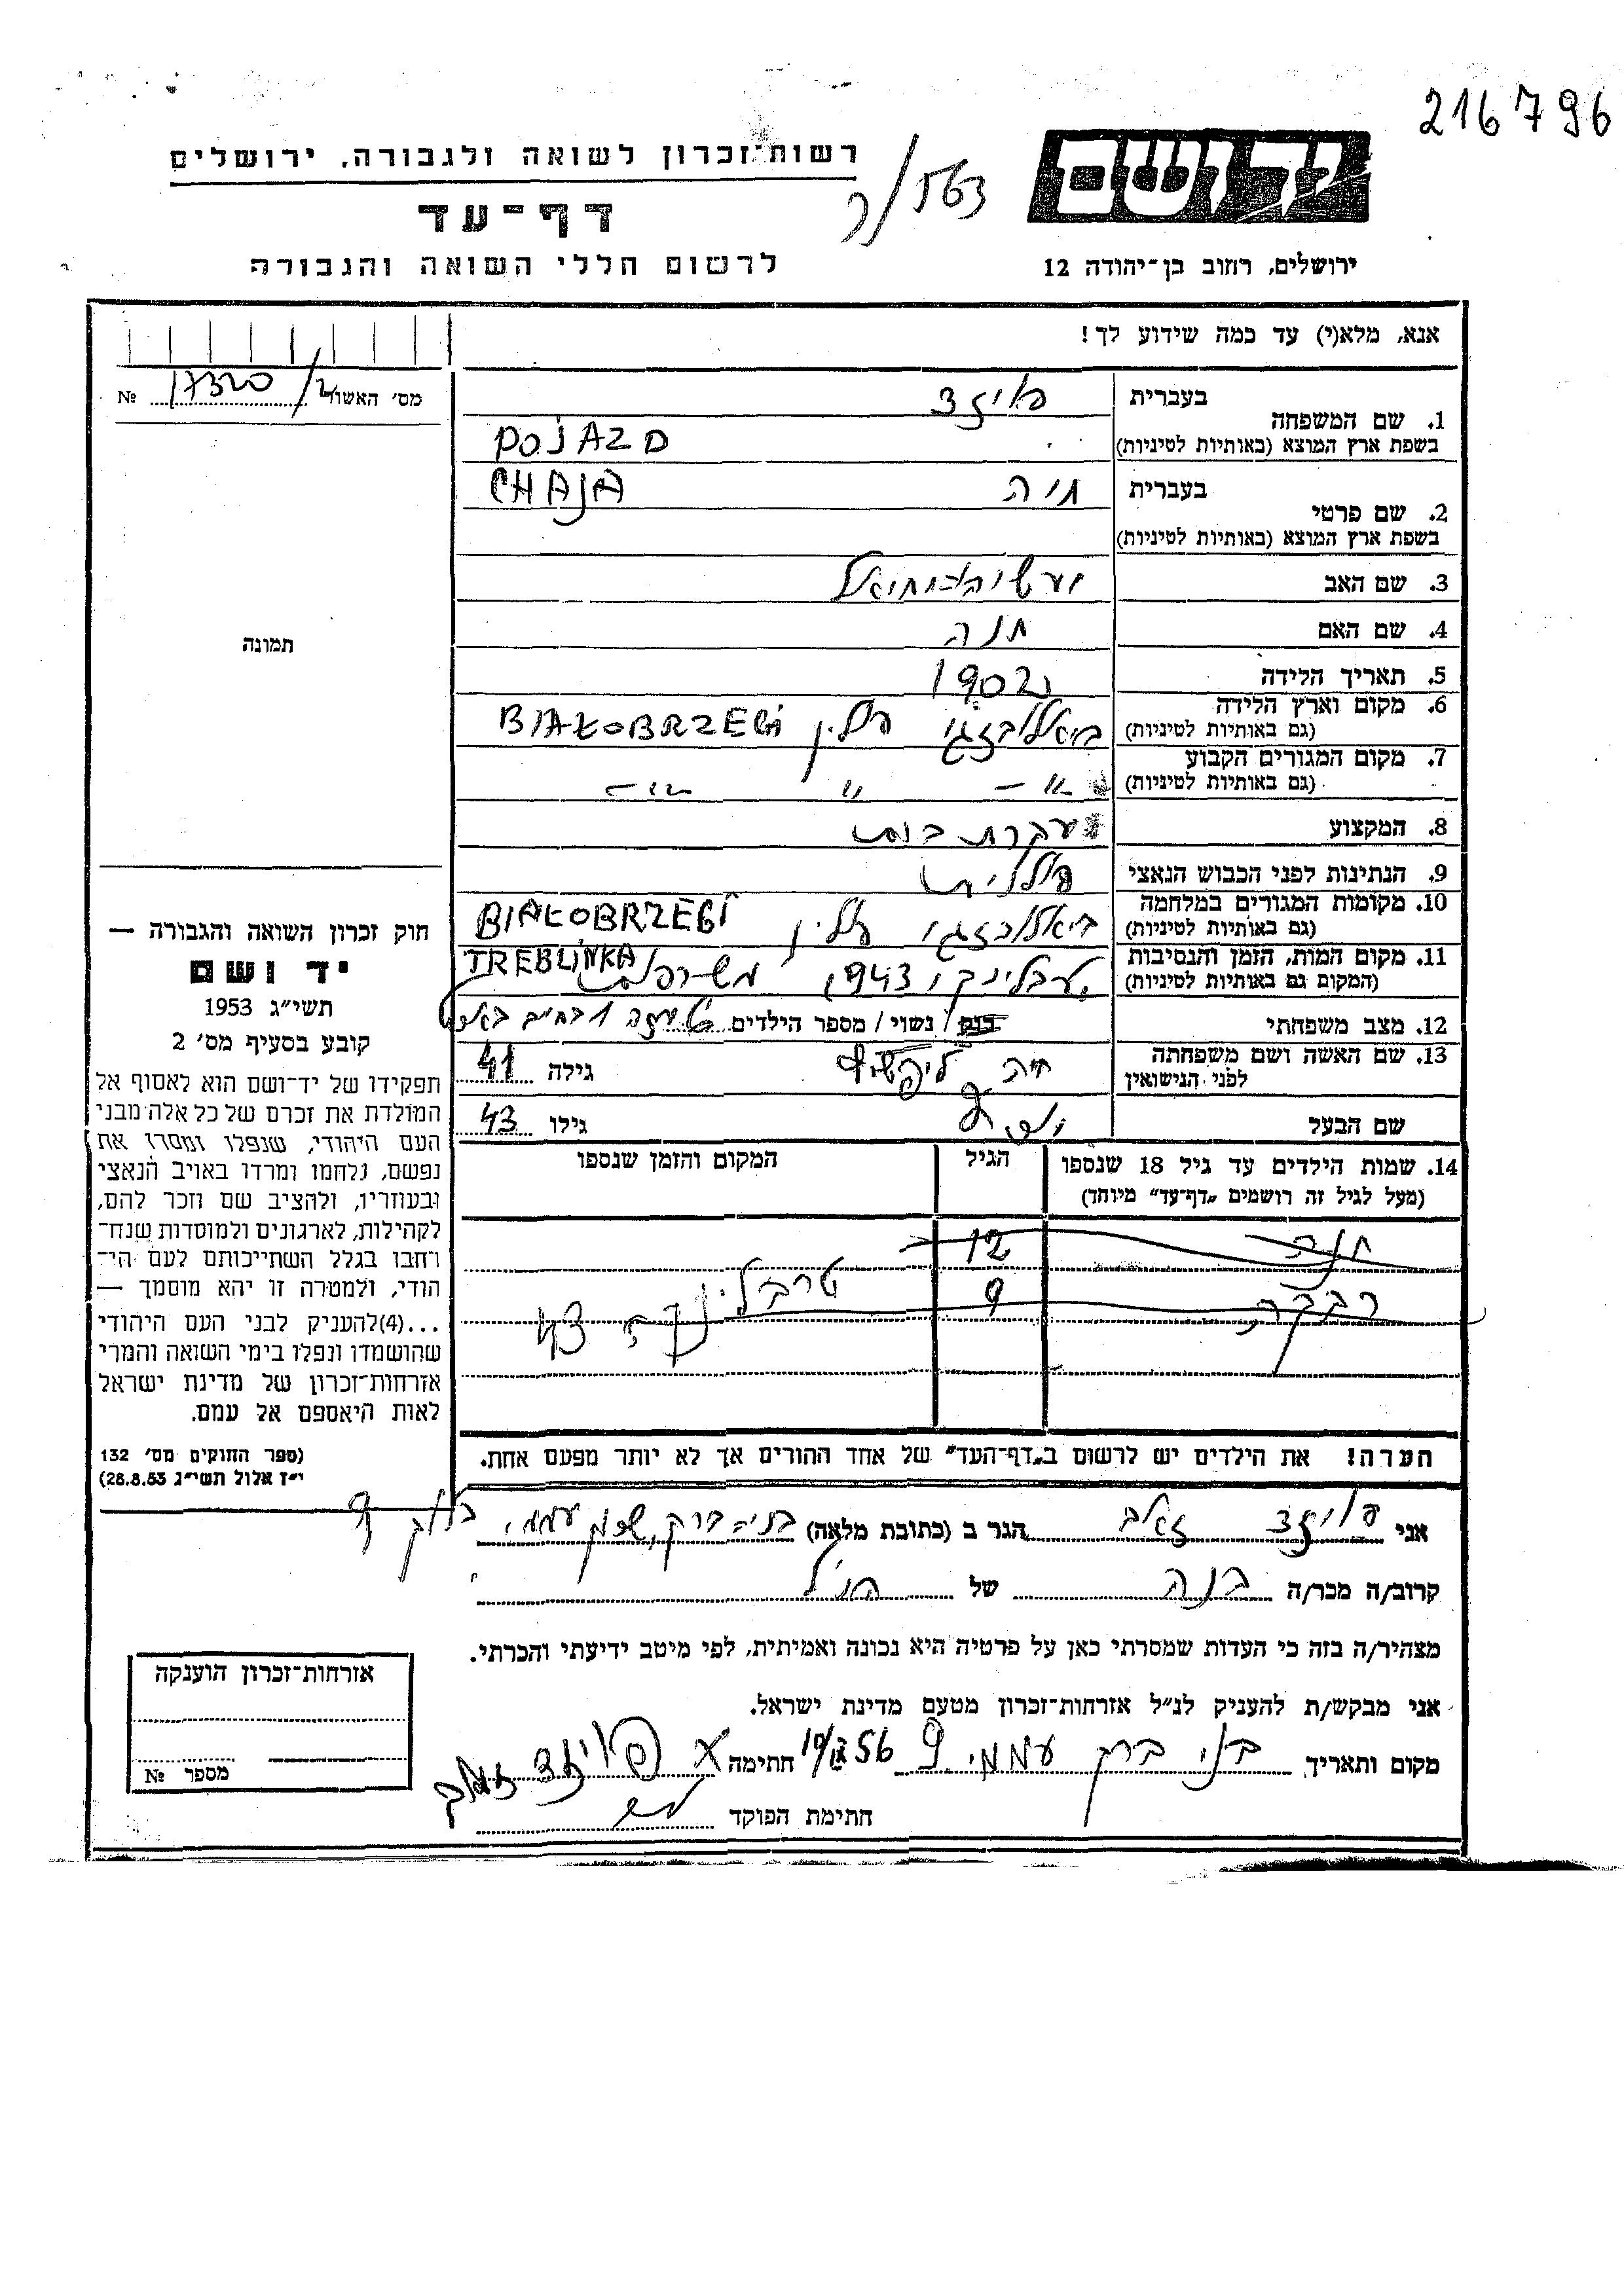 216796
רשות־זכרון לשואה ולגבורה, ירושלים
דף־עד
לרשום חללי השואה והגבורה
563/
יד ושם
ירושלים, רחוב בן־יהודה 12
אנא, מלא(י) עד כמה שידוע לך!
מס׳ האשור 17320/ №
תמונה
1. שם המשפחה
בעברית פויזד
בשפת ארץ המוצא (באותיות לטיניות) POJAZD
2. שם פרטי
בעברית חיה CHAJA
בשפת ארץ המוצא (באותיות לטיניות)
3. שם האב
4. שם האם חנה
5. תאריך הלידה 1902
6. מקום וארץ הלידה
(גם באותיות לטיניות) ביאלובזגי פולין BIAŁOBRZEGI
7. מקום המגורים הקבוע
(גם באותיות לטיניות) –״– ״ –״–
8. המקצוע עקרת בית
9. הנתינות לפני הכבוש הנאצי פולנית
10. מקומות המגורים במלחמה
(גם באותיות לטיניות) ביאלובזגי פולין BIAŁOBRZEGI
11. מקום המות, הזמן והנסיבות
(המקום גם באותיות לטיניות) טרבלינקי 1943 TREBLINKA
12. מצב משפחתי רוק/ נשוי/ מספר הילדים
13. שם האשה ושם משפחתה
לפני הנישואין חיה גילה 41
שם הבעל גילו 43
14. שמות הילדים עד גיל 18 שנספו הגיל המקום והזמן שנספו
(מעל לגיל זה רושמים „דף־עד” מיוחד)
חנה 12
רבקה 9 טרבלינקה 43
הערה! את הילדים יש לרשום ב„דף־העד” של אחד ההורים אך לא יותר מפעם אחת.
חוק זכרון השואה והגבורה —
יד ושם
תשי״ג 1953
קובע בסעיף מס׳ 2
תפקידו של יד־ושם הוא לאסוף אל
המולדת את זכרם של כל אלה מבני
העם היהודי, שנפלו ומסרו את
נפשם, נלחמו ומרדו באויב הנאצי
ובעוזריו, ולהציב שם וזכר להם,
לקהילות, לארגונים ולמוסדות שנח־
רחבו בגלל השתייכותם לעם הי־
הודי, ולמטרה זו יהא מוסמך —
...(4)להעניק לבני העם היהודי
שהושמדו ונפלו בימי השואה והמרי
אזרחות־זכרון של מדינת ישראל
לאות היאספם אל עמם.
(ספר החוקים מס׳ 132
י״ז אלול תשי״ג 28.8.53)
אני פויזד זאב הגר ב (כתובת מלאה) בני ברק, שכון עממי בלוק 9
קרוב/ה מכר/ה בנה של הנ״ל
מצהיר/ה בזה כי העדות שמסרתי כאן על פרטיה היא נכונה ואמיתית, לפי מיטב ידיעתי והכרתי.
אני מבקש/ת להעניק לנ״ל אזרחות־זכרון מטעם מדינת ישראל.
מקום ותאריך בני ברק עממי 9 56 חתימה פויזד זאב
חתימת הפוקד
אזרחות־זכרון הוענקה
מספר №